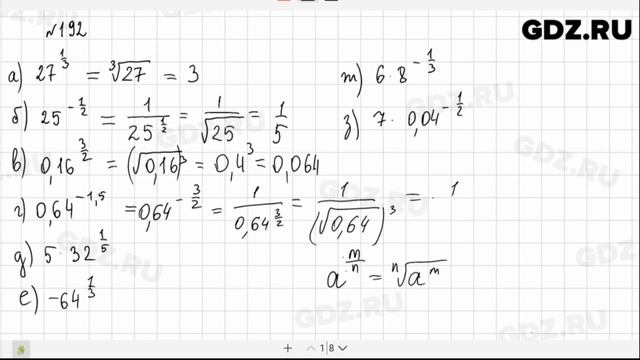 №192
GDZ.RU
а) 27^(1/3) = ∛27 = 3
б) 25^(-1/2) = 1/25^(1/2) = 1/√25 = 1/5
в) 0,16^(3/2) = (√0,16)³ = 0,4³ = 0,064
г) 0,64^(-1,5) = 0,64^(-3/2) = 1/0,64^(3/2) = 1/(√0,64)³ = 1
д) 5·32^(1/5)
е) -64^(1/3)
ж) 6·8^(-1/3)
з) 7·0,04^(-1/2)
a^(m/n) = ⁿ√a^m
1|8